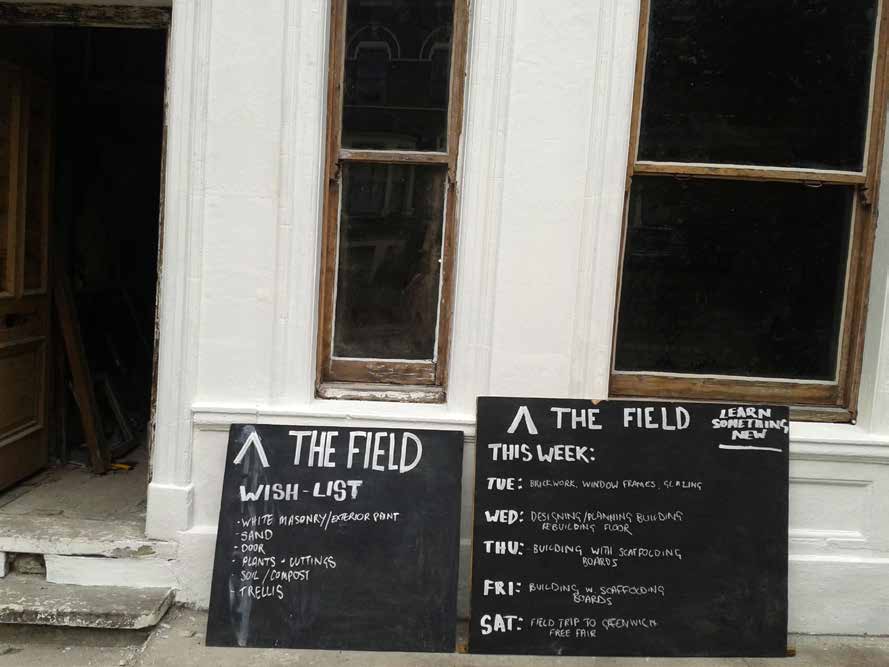 THE FIELD
WISH-LIST
- WHITE MASONRY/EXTERIOR PAINT
- SAND
- DOOR
- PLANTS + CUTTINGS
SOIL/COMPOST
- TRELLIS
THE FIELD
LEARN
SOMETHING
NEW
THIS WEEK:
TUE: BRICKWORK, WINDOW FRAMES, GLAZING
WED: DESIGNING/PLANNING BUILDING
REBUILDING FLOOR
THU: BUILDING WITH SCAFFOLDING
BOARDS
FRI: BUILDING W. SCAFFOLDING
BOARDS
SAT: FIELD TRIP TO GREENWICH
FREE FAIR